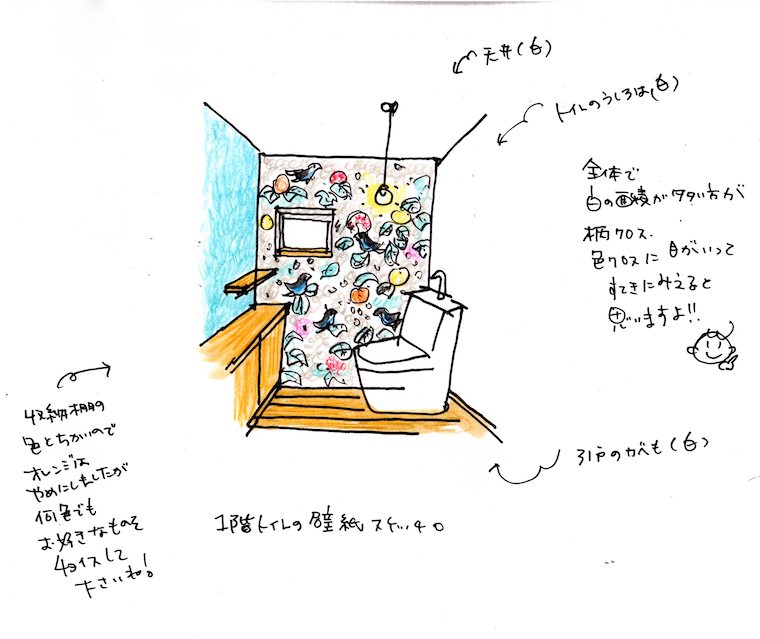 天井(白)
トイレのうしろは(白)
全体で
白の面積が多い方が
柄クロス、
色クロスに目がいって
すてきにみえると
思いますよ!!
引戸のカベも(白)
収納棚の
色とちかいので
オレンジは
やめにしましたが
何色でも
お好きなものを
チョイスして
下さいね!
1階トイレの壁紙スケッチ。